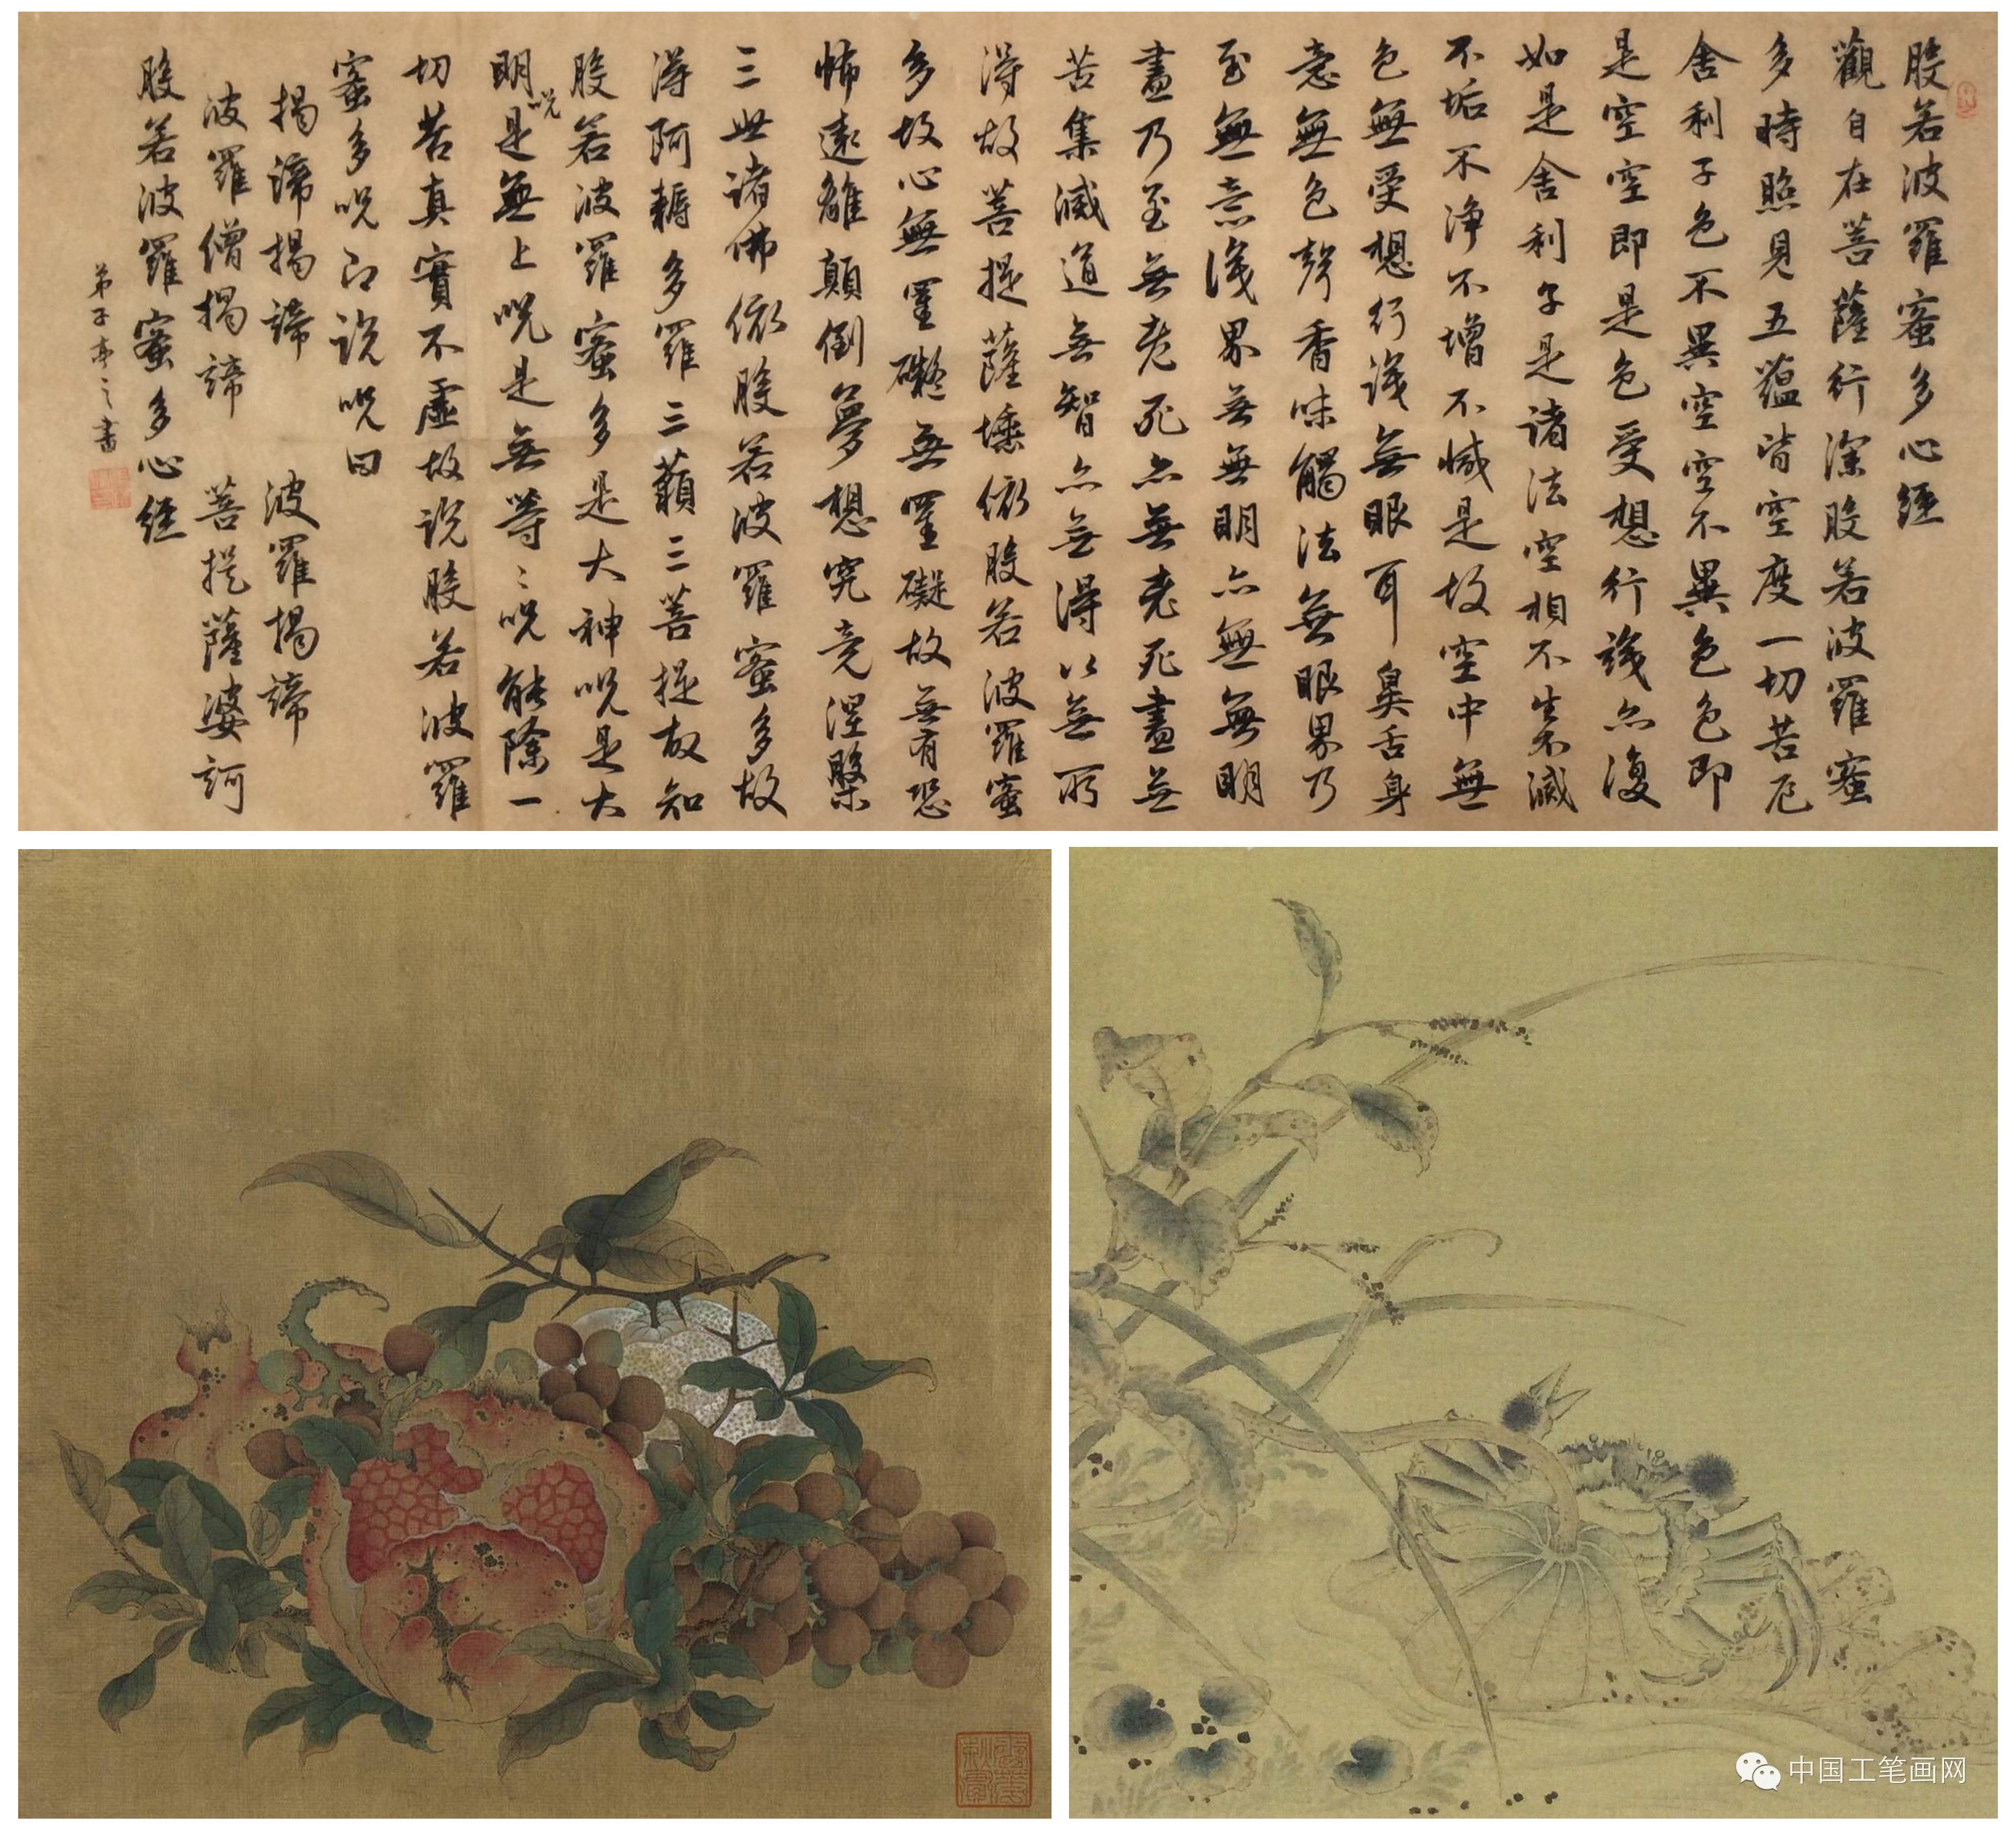 般若波羅蜜多心經
觀自在菩薩行深般若波羅蜜
多時照見五蘊皆空度一切苦厄
舍利子色不異空空不異色色即
是空空即是色受想行識亦復
如是舍利子是諸法空相不生不滅
不垢不淨不增不減是故空中無
色無受想行識無眼耳鼻舌身
意無色聲香味觸法無眼界乃
至無意識界無無明亦無無明
盡乃至無老死亦無老死盡無
苦集滅道無智亦無得以無所
得故菩提薩埵依般若波羅蜜
多故心無罣礙無罣礙故無有恐
怖遠離顛倒夢想究竟涅槃
三世諸佛依般若波羅蜜多故
得阿耨多羅三藐三菩提故知
般若波羅蜜多是大神呪是大
明呪是無上呪是無等〻呪能除一
切苦真實不虛故說般若波羅
蜜多呪即說呪曰
揭諦揭諦 波羅揭諦
波羅僧揭諦 菩提薩婆訶
般若波羅蜜多心經
弟子亭之書
中国工笔画网